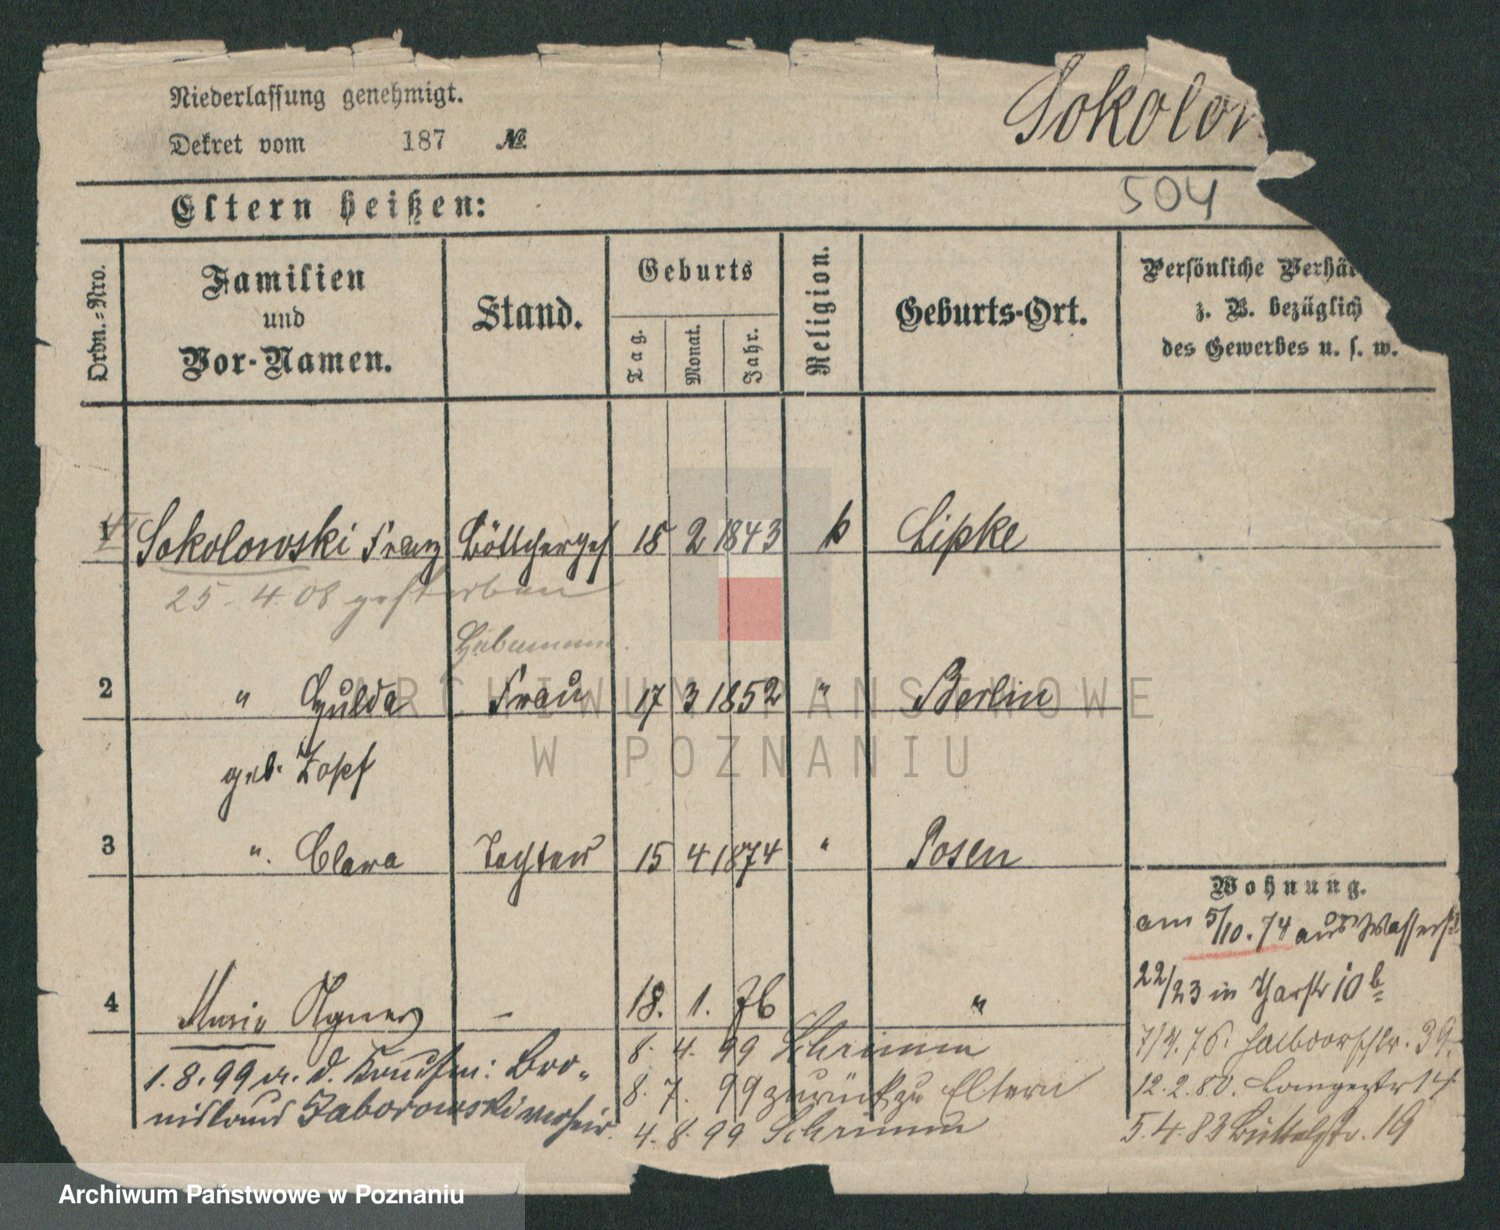 Niederlassung genehmigt.
Dekret vom 187 №
Sokolow
Eltern heißen:
504
Ordn.-Nro.
Familien
und
Vor-Namen.
Stand.
Geburts
Tag.
Monat.
Jahr.
Religion.
Geburts-Ort.
Persönliche Verhä
z. B. bezüglich
des Gewerbes u. s. w.
1 Sokolowski Franz Böttcherges 18 2 1843 k Lipke
25. 4. 08 gestorben
Hebamme
2 " Hulda Frau 17 3 1852 " Berlin
geb. Zopf
3 " Clara Tochter 15 4 1874 " Posen
Wohnung.
am 5/10. 74 aus Wasserst
22/23 in Thorstr 10 b
4 Maria Agnes – 18. 1. 76 "
8. 4. 99 Schrimm
1.8.99 m. d. Bro-
8. 7. 99 zurück zu Eltern
nislaus Zaborowski verheir.
4. 8. 99 Schrimm
7/4. 76. Halbdorfstr. 39.
12. 2. 80. Langestr 14
5. 4. 83 Büttelstr. 19
ARCHIWUM PAŃSTWOWE
W POZNANIU
Archiwum Państwowe w Poznaniu